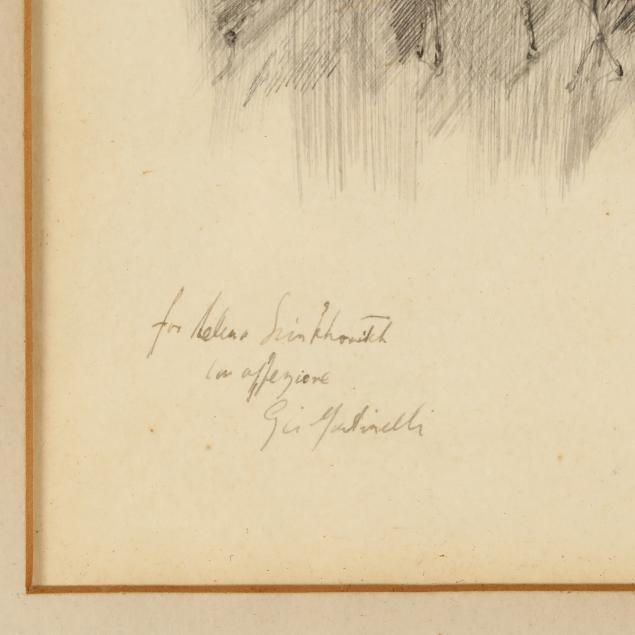 for Helena Simkhovitch
con affezione
Gio Martinelli